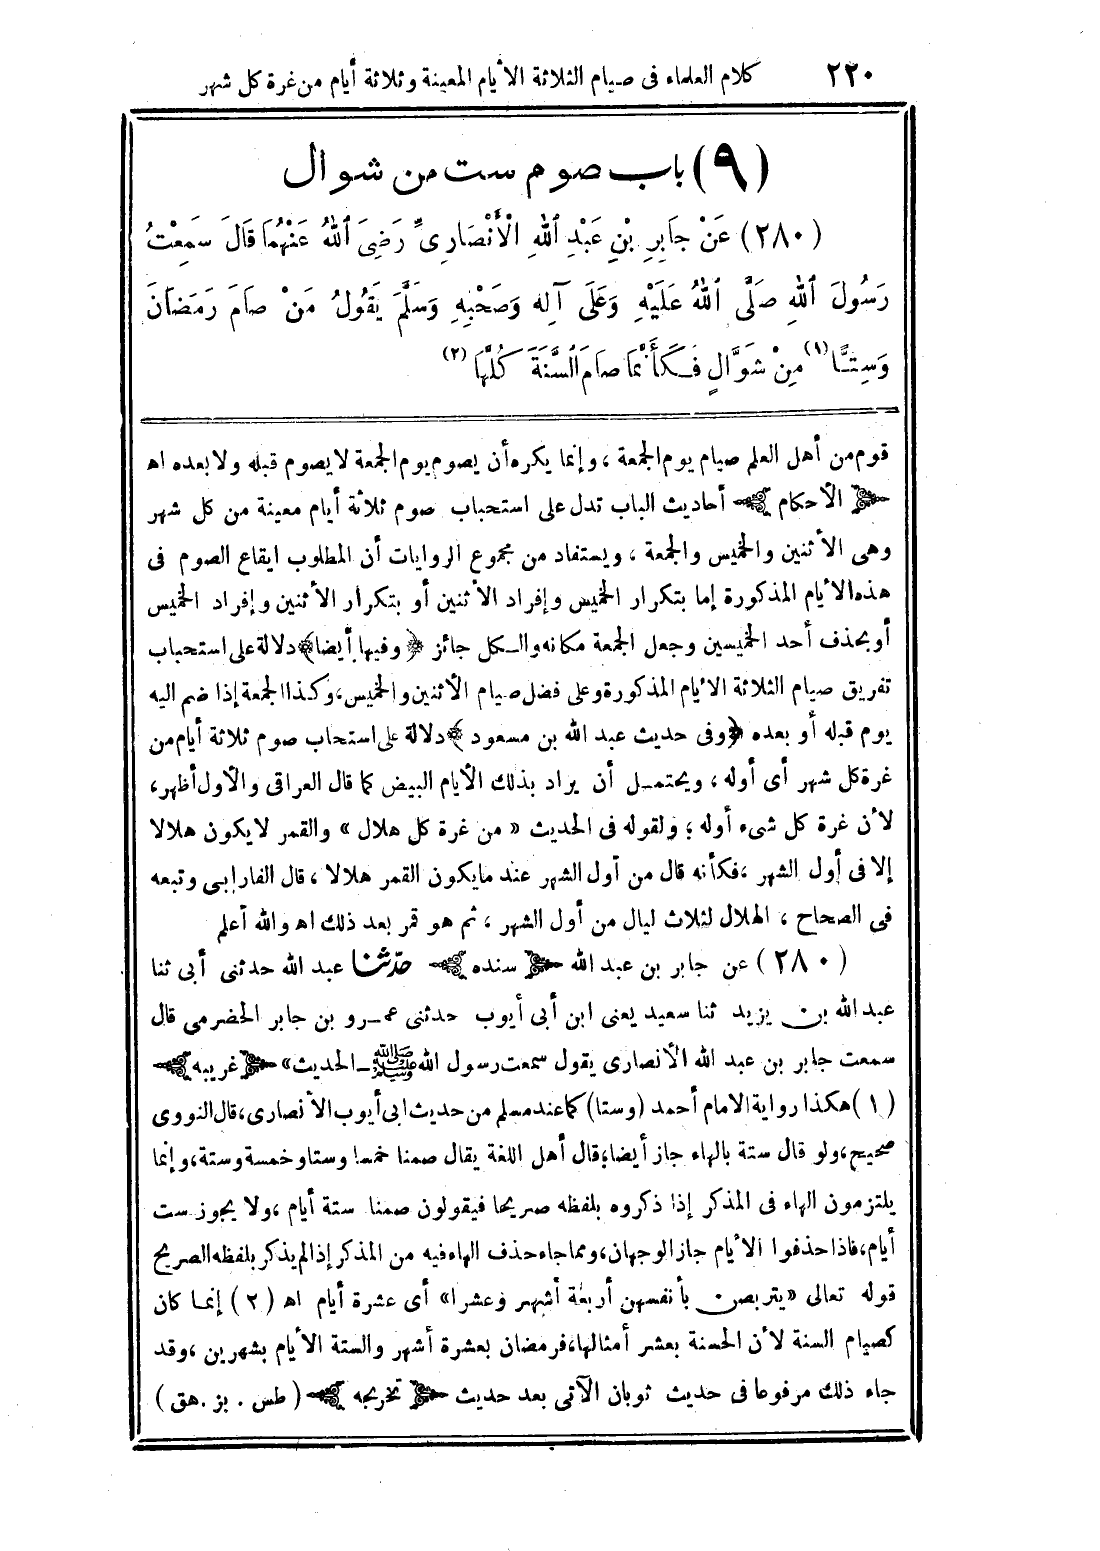 ٢٢٠ كلام العلماء فى صيام الثلاثة الأيام المعينة وثلاثة أيام من غرة كل شهر
(٩) باب صوم ست من شوال
(٢٨٠) عَنْ جَابِرِ بْنِ عَبْدِ اللهِ الْأَنْصَارِىِّ رَضِىَ اللهُ عَنْهُمَا قَالَ سَمِعْتُ
رَسُولَ اللهِ صَلَّى اللهُ عَلَيْهِ وَعَلَى آلِهِ وَصَحْبِهِ وَسَلَّمَ يَقُولُ مَنْ صَامَ رَمَضَانَ
وَسِتًّا (١) مِنْ شَوَّالٍ فَكَأَنَّمَا صَامَ السَّنَةَ كُلَّهَا (٢)
قوم من أهل العلم صيام يوم الجمعة ، وإنما يكره أن يصوم يوم الجمعة لا يصوم قبله ولا بعده اه
﴿ الأحكام ﴾ أحاديث الباب تدل على استحباب صوم ثلاثة أيام معينة من كل شهر
وهى الأثنين والخميس والجمعة ، ويستفاد من مجموع الروايات أن المطلوب ايقاع الصوم فى
هذه الأيام المذكورة إما بتكرار الخميس وإفراد الأثنين أو بتكرار الأثنين وإفراد الخميس
أو بحذف أحد الخميسين وجعل الجمعة مكانه والكل جائز ﴿ وفيها أيضا ﴾ دلالة على استحباب
تفريق صيام الثلاثة الأيام المذكورة وعلى فضل صيام الأثنين والخميس، وكذا الجمعة إذا ضم اليه
يوم قبله أو بعده ﴿ وفى حديث عبد الله بن مسعود ﴾ دلالة على استحاب صوم ثلاثة أيام من
غرة كل شهر أى أوله ، ويحتمل أن يراد بذلك الأيام البيض كما قال العراقى والأول أظهر،
لأن غرة كل شىء أوله ؛ ولقوله فى الحديث « من غرة كل هلال » والقمر لا يكون هلالا
إلا فى أول الشهر ، فكأنه قال من أول الشهر عند ما يكون القمر هلالا ، قال الفارابى وتبعه
فى الصحاح ، الهلال لثلاث ليال من أول الشهر ، ثم هو قمر بعد ذلك اه والله أعلم
(٢٨٠) عن جابر بن عبد الله ﴿ سنده ﴾ حدثنا عبد الله حدثنى أبى ثنا
عبد الله بن يزيد ثنا سعيد يعنى ابن أبى أيوب حدثنى عمرو بن جابر الحضرمى قال
سمعت جابر بن عبد الله الأنصارى يقول سمعت رسول الله ﷺ ـ الحديث» ﴿ غريبه ﴾
(١) هكذا رواية الامام أحمد (وستا) كما عند مسلم من حديث ابى أيوب الأنصارى، قال النووى
صحيح، ولو قال ستة بالهاء جاز أيضا؛ قال أهل اللغة يقال صمنا خمسا وستا وخمسة وستة، وإنما
يلتزمون الهاء فى المذكر إذا ذكروه بلفظه صريحا فيقولون صمنا ستة أيام ، ولا يجوز ست
أيام، فاذا حذفوا الأيام جاز الوجهان، ومما جاء حذف الهاء فيه من المذكر إذا لم يذكر بلفظه الصريح
قوله تعالى «يتربصن بأنفسهن أربعة أشهر وعشرا» أى عشرة أيام اه (٢) إنما كان
كصيام السنة لأن الحسنة بعشر أمثالها، فرمضان بعشرة أشهر والستة الأيام بشهرين ، وقد
جاء ذلك مرفوعا فى حديث ثوبان الآتى بعد حديث ﴿ تخريجه ﴾ (طس . بز . هق)